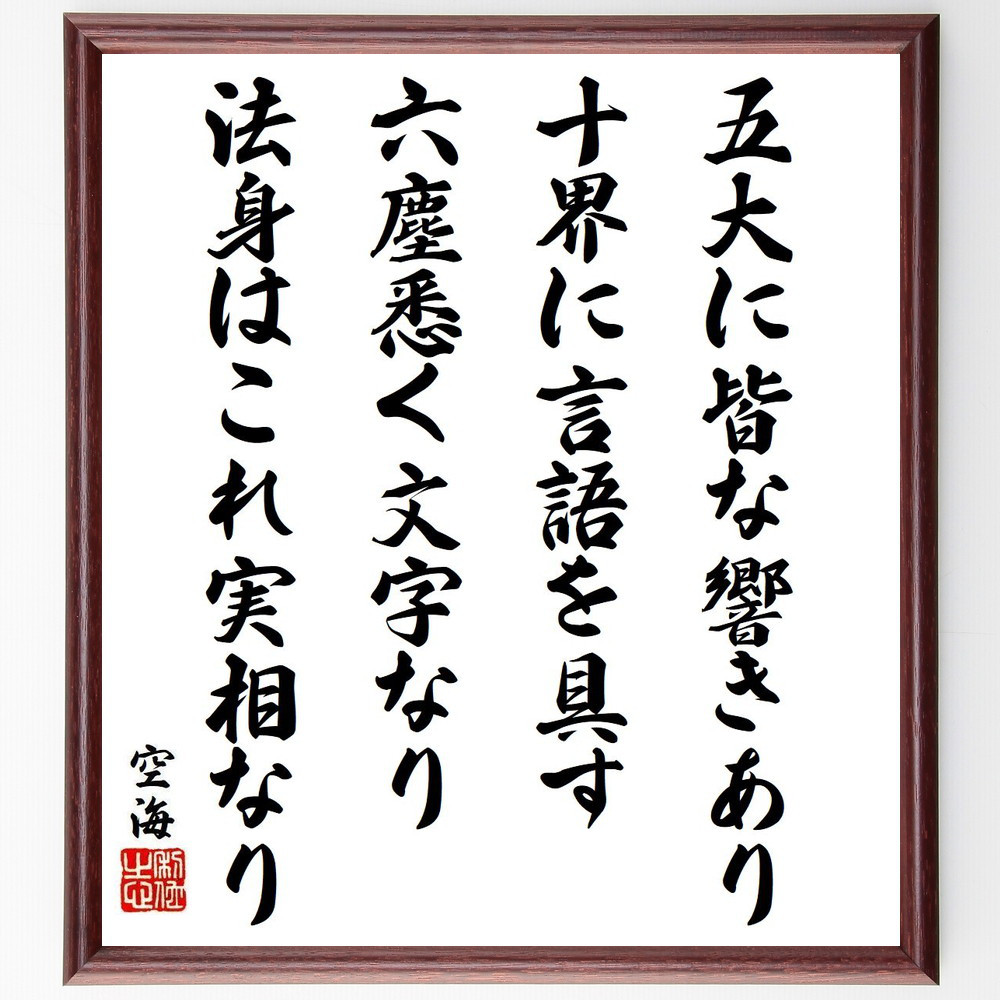 五大に皆な響きあり
十界に言語を具す
六塵悉く文字なり
法身はこれ実相なり
空海